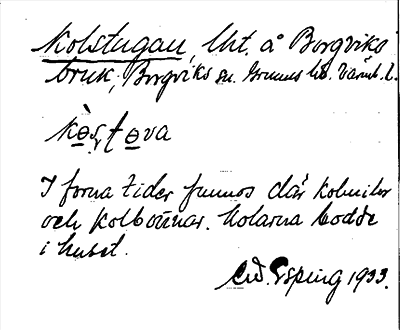 Kolstugan, lht. å Borgviks
bruk, Borgviks sn. Grums hd. Värml. l.
kòl̥ʂt̥ova
I forna tider funnos där kolmilor
och kolbottnar. Kolarna bodde
i huset.
Esping 1933.